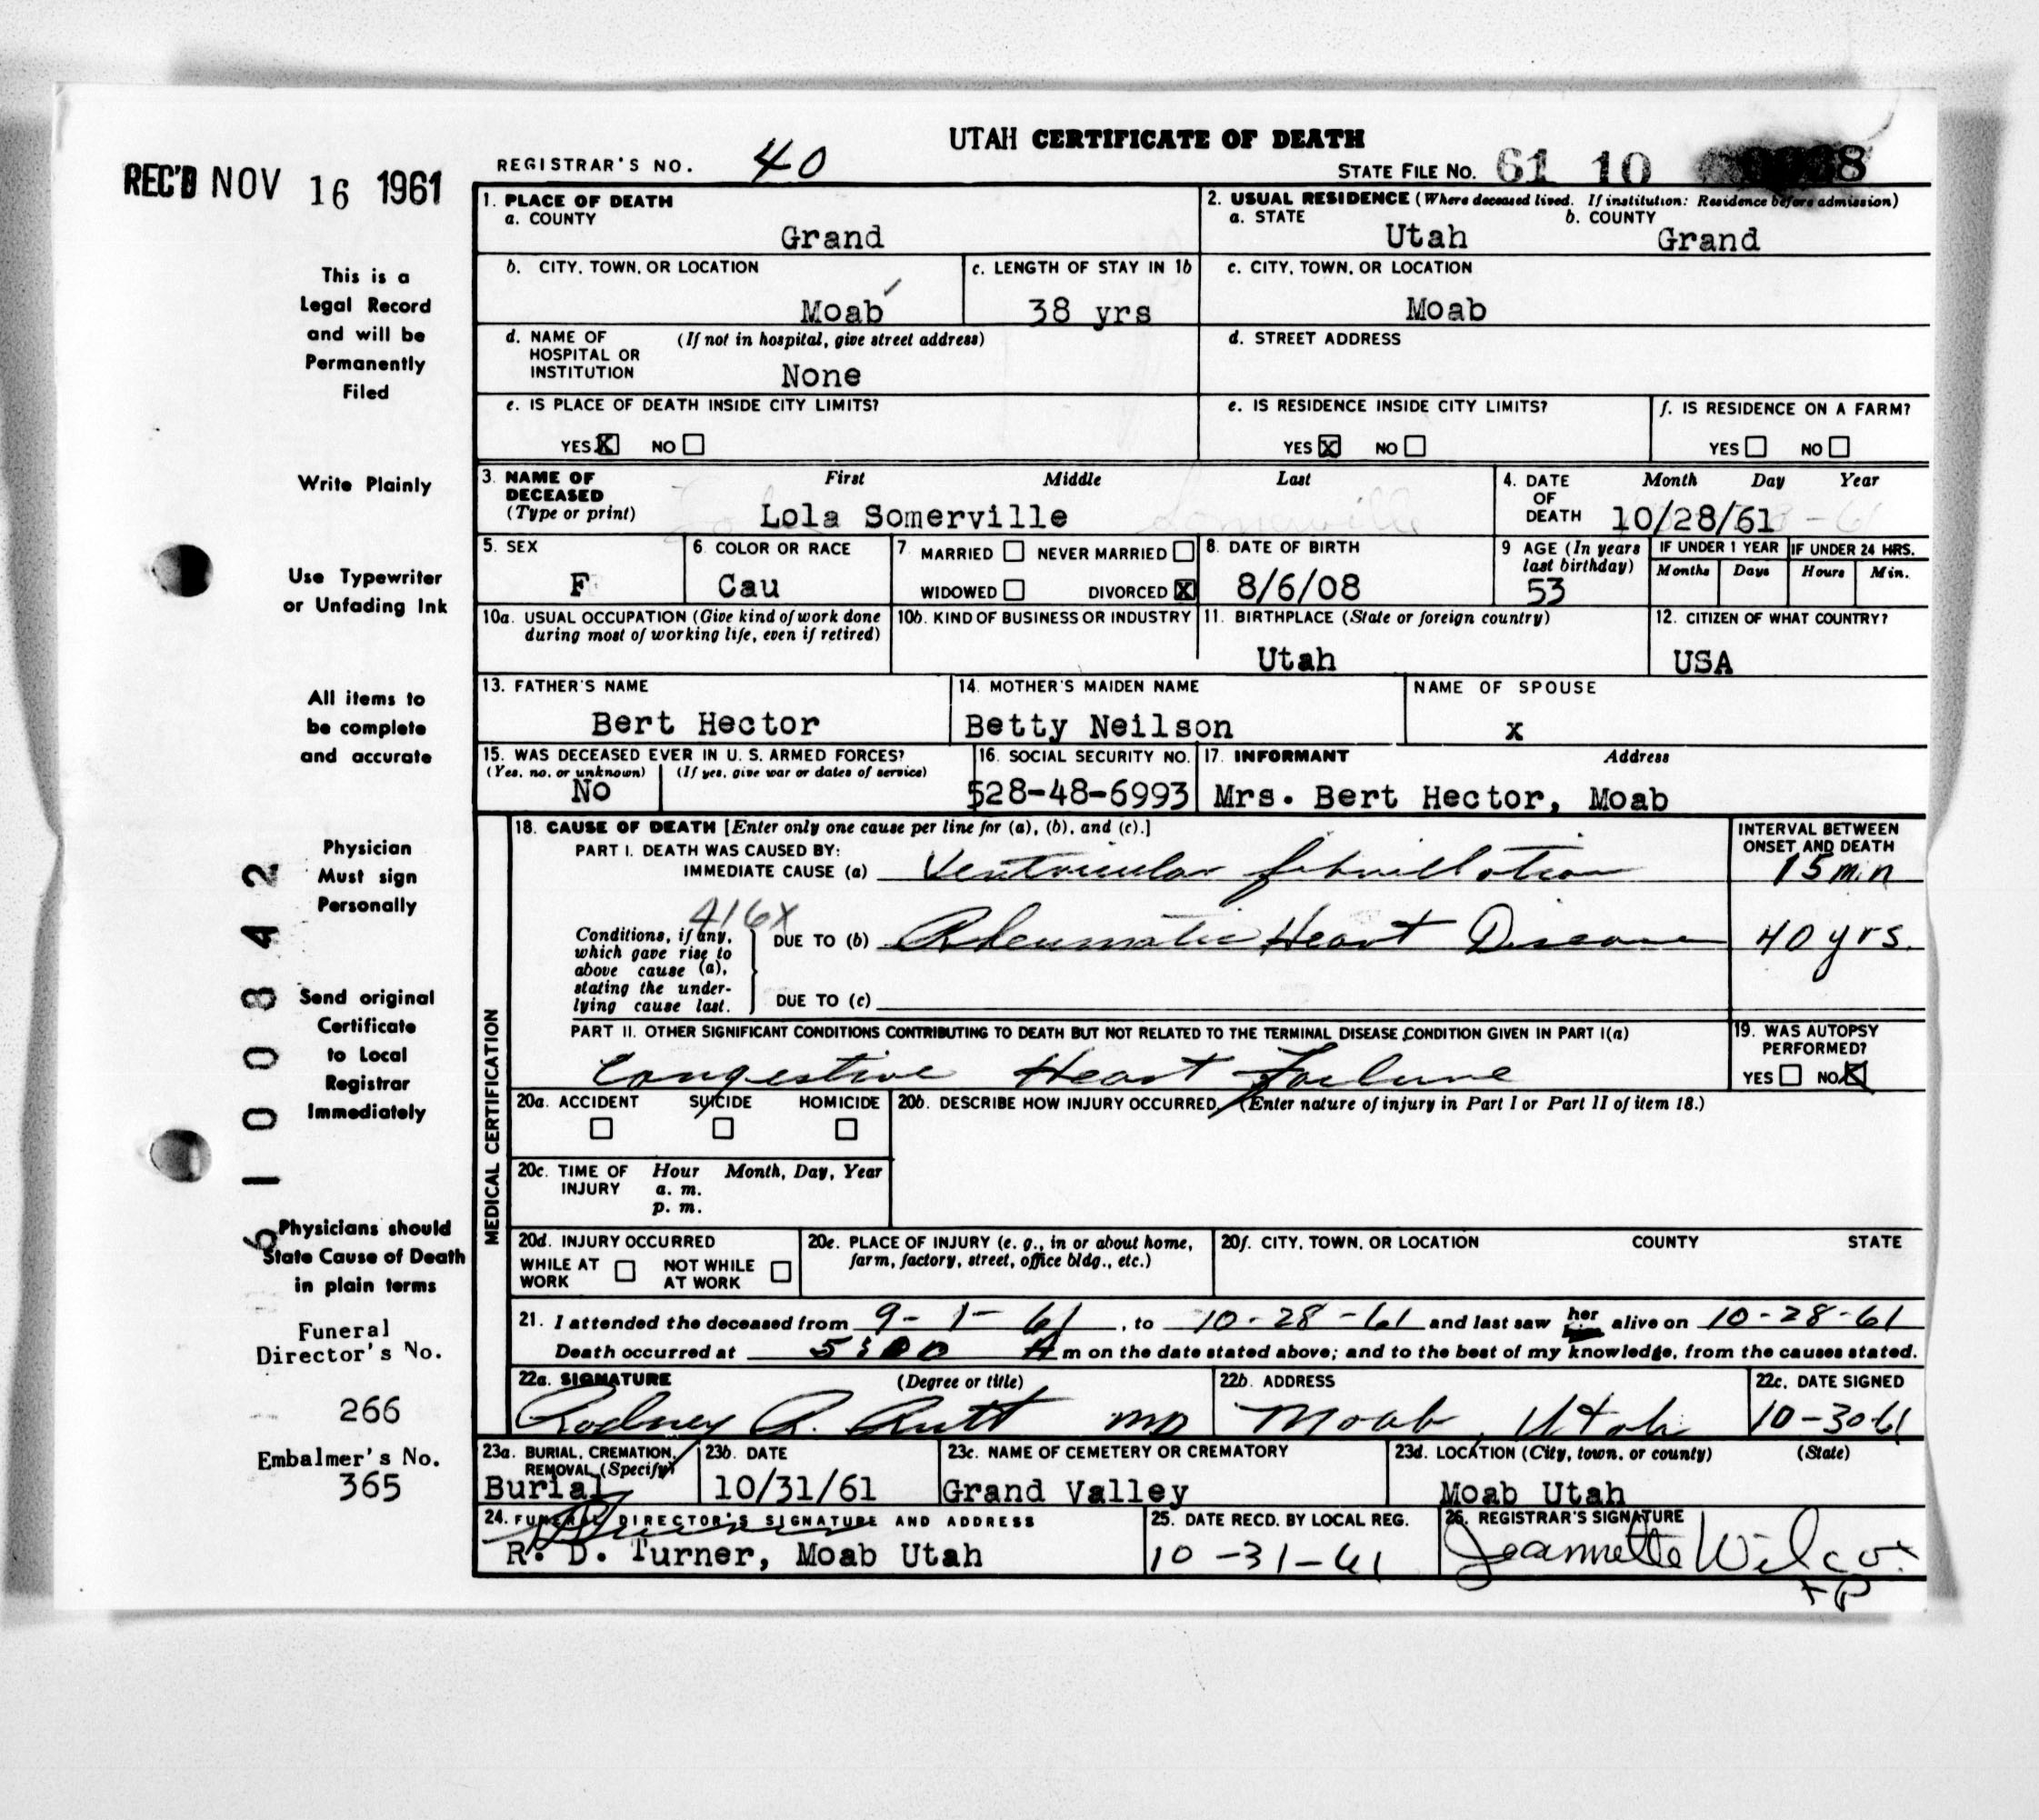 UTAH CERTIFICATE OF DEATH
REC'D NOV 16 1961
REGISTRAR'S NO. 40
STATE FILE No. 61 10 8
1. PLACE OF DEATH
a. COUNTY
Grand
2. USUAL RESIDENCE (Where deceased lived. If institution: Residence before admission)
a. STATE b. COUNTY
Utah Grand
This is a
Legal Record
and will be
Permanently
Filed
b. CITY, TOWN, OR LOCATION
Moab
c. LENGTH OF STAY IN 1b
38 yrs
c. CITY, TOWN, OR LOCATION
Moab
d. NAME OF HOSPITAL OR INSTITUTION (If not in hospital, give street address)
None
d. STREET ADDRESS
e. IS PLACE OF DEATH INSIDE CITY LIMITS?
YES X NO
e. IS RESIDENCE INSIDE CITY LIMITS?
YES X NO
f. IS RESIDENCE ON A FARM?
YES NO
Write Plainly
3. NAME OF DECEASED (Type or print)
First Middle Last
Lola Somerville
4. DATE OF DEATH
Month Day Year
10/28/61
Use Typewriter
or Unfading Ink
5. SEX
F
6. COLOR OR RACE
Cau
7. MARRIED NEVER MARRIED
WIDOWED DIVORCED X
8. DATE OF BIRTH
8/6/08
9 AGE (In years last birthday)
53
IF UNDER 1 YEAR
Months Days
IF UNDER 24 HRS.
Hours Min.
10a. USUAL OCCUPATION (Give kind of work done during most of working life, even if retired)
10b. KIND OF BUSINESS OR INDUSTRY
11. BIRTHPLACE (State or foreign country)
Utah
12. CITIZEN OF WHAT COUNTRY?
USA
All items to
be complete
and accurate
13. FATHER'S NAME
Bert Hector
14. MOTHER'S MAIDEN NAME
Betty Neilson
NAME OF SPOUSE
x
15. WAS DECEASED EVER IN U. S. ARMED FORCES?
(Yes, no, or unknown) (If yes, give war or dates of service)
No
16. SOCIAL SECURITY NO.
528-48-6993
17. INFORMANT Address
Mrs. Bert Hector, Moab
Physician
Must sign
Personally
6100842
MEDICAL CERTIFICATION
18. CAUSE OF DEATH [Enter only one cause per line for (a), (b), and (c).]
PART I. DEATH WAS CAUSED BY:
IMMEDIATE CAUSE (a) Ventricular fibrillation
INTERVAL BETWEEN
ONSET AND DEATH
15 min
416X
Conditions, if any,
which gave rise to
above cause (a),
stating the under-
lying cause last.
DUE TO (b) Rheumatic Heart Disease
40 yrs.
DUE TO (c)
PART II. OTHER SIGNIFICANT CONDITIONS CONTRIBUTING TO DEATH BUT NOT RELATED TO THE TERMINAL DISEASE CONDITION GIVEN IN PART I(a)
Congestive Heart Failure
19. WAS AUTOPSY PERFORMED?
YES NO X
Send original
Certificate
to Local
Registrar
Immediately
20a. ACCIDENT SUICIDE HOMICIDE
20b. DESCRIBE HOW INJURY OCCURRED. (Enter nature of injury in Part I or Part II of item 18.)
20c. TIME OF INJURY Hour Month, Day, Year
a. m.
p. m.
Physicians should
State Cause of Death
in plain terms
20d. INJURY OCCURRED
WHILE AT WORK NOT WHILE AT WORK
20e. PLACE OF INJURY (e. g., in or about home, farm, factory, street, office bldg., etc.)
20f. CITY, TOWN, OR LOCATION COUNTY STATE
21. I attended the deceased from 9-1-61, to 10-28-61 and last saw her alive on 10-28-61
Death occurred at 5:00 A m on the date stated above; and to the best of my knowledge, from the causes stated.
Funeral
Director's No.
266
22a. SIGNATURE (Degree or title)
Rodney R. Rutt MD
22b. ADDRESS
Moab, Utah
22c. DATE SIGNED
10-30-61
Embalmer's No.
365
23a. BURIAL, CREMATION, REMOVAL (Specify)
Burial
23b. DATE
10/31/61
23c. NAME OF CEMETERY OR CREMATORY
Grand Valley
23d. LOCATION (City, town, or county) (State)
Moab Utah
24. FUNERAL DIRECTOR'S SIGNATURE AND ADDRESS
R. D. Turner, Moab Utah
25. DATE RECD. BY LOCAL REG.
10-31-61
26. REGISTRAR'S SIGNATURE
Jeannette Wilcox